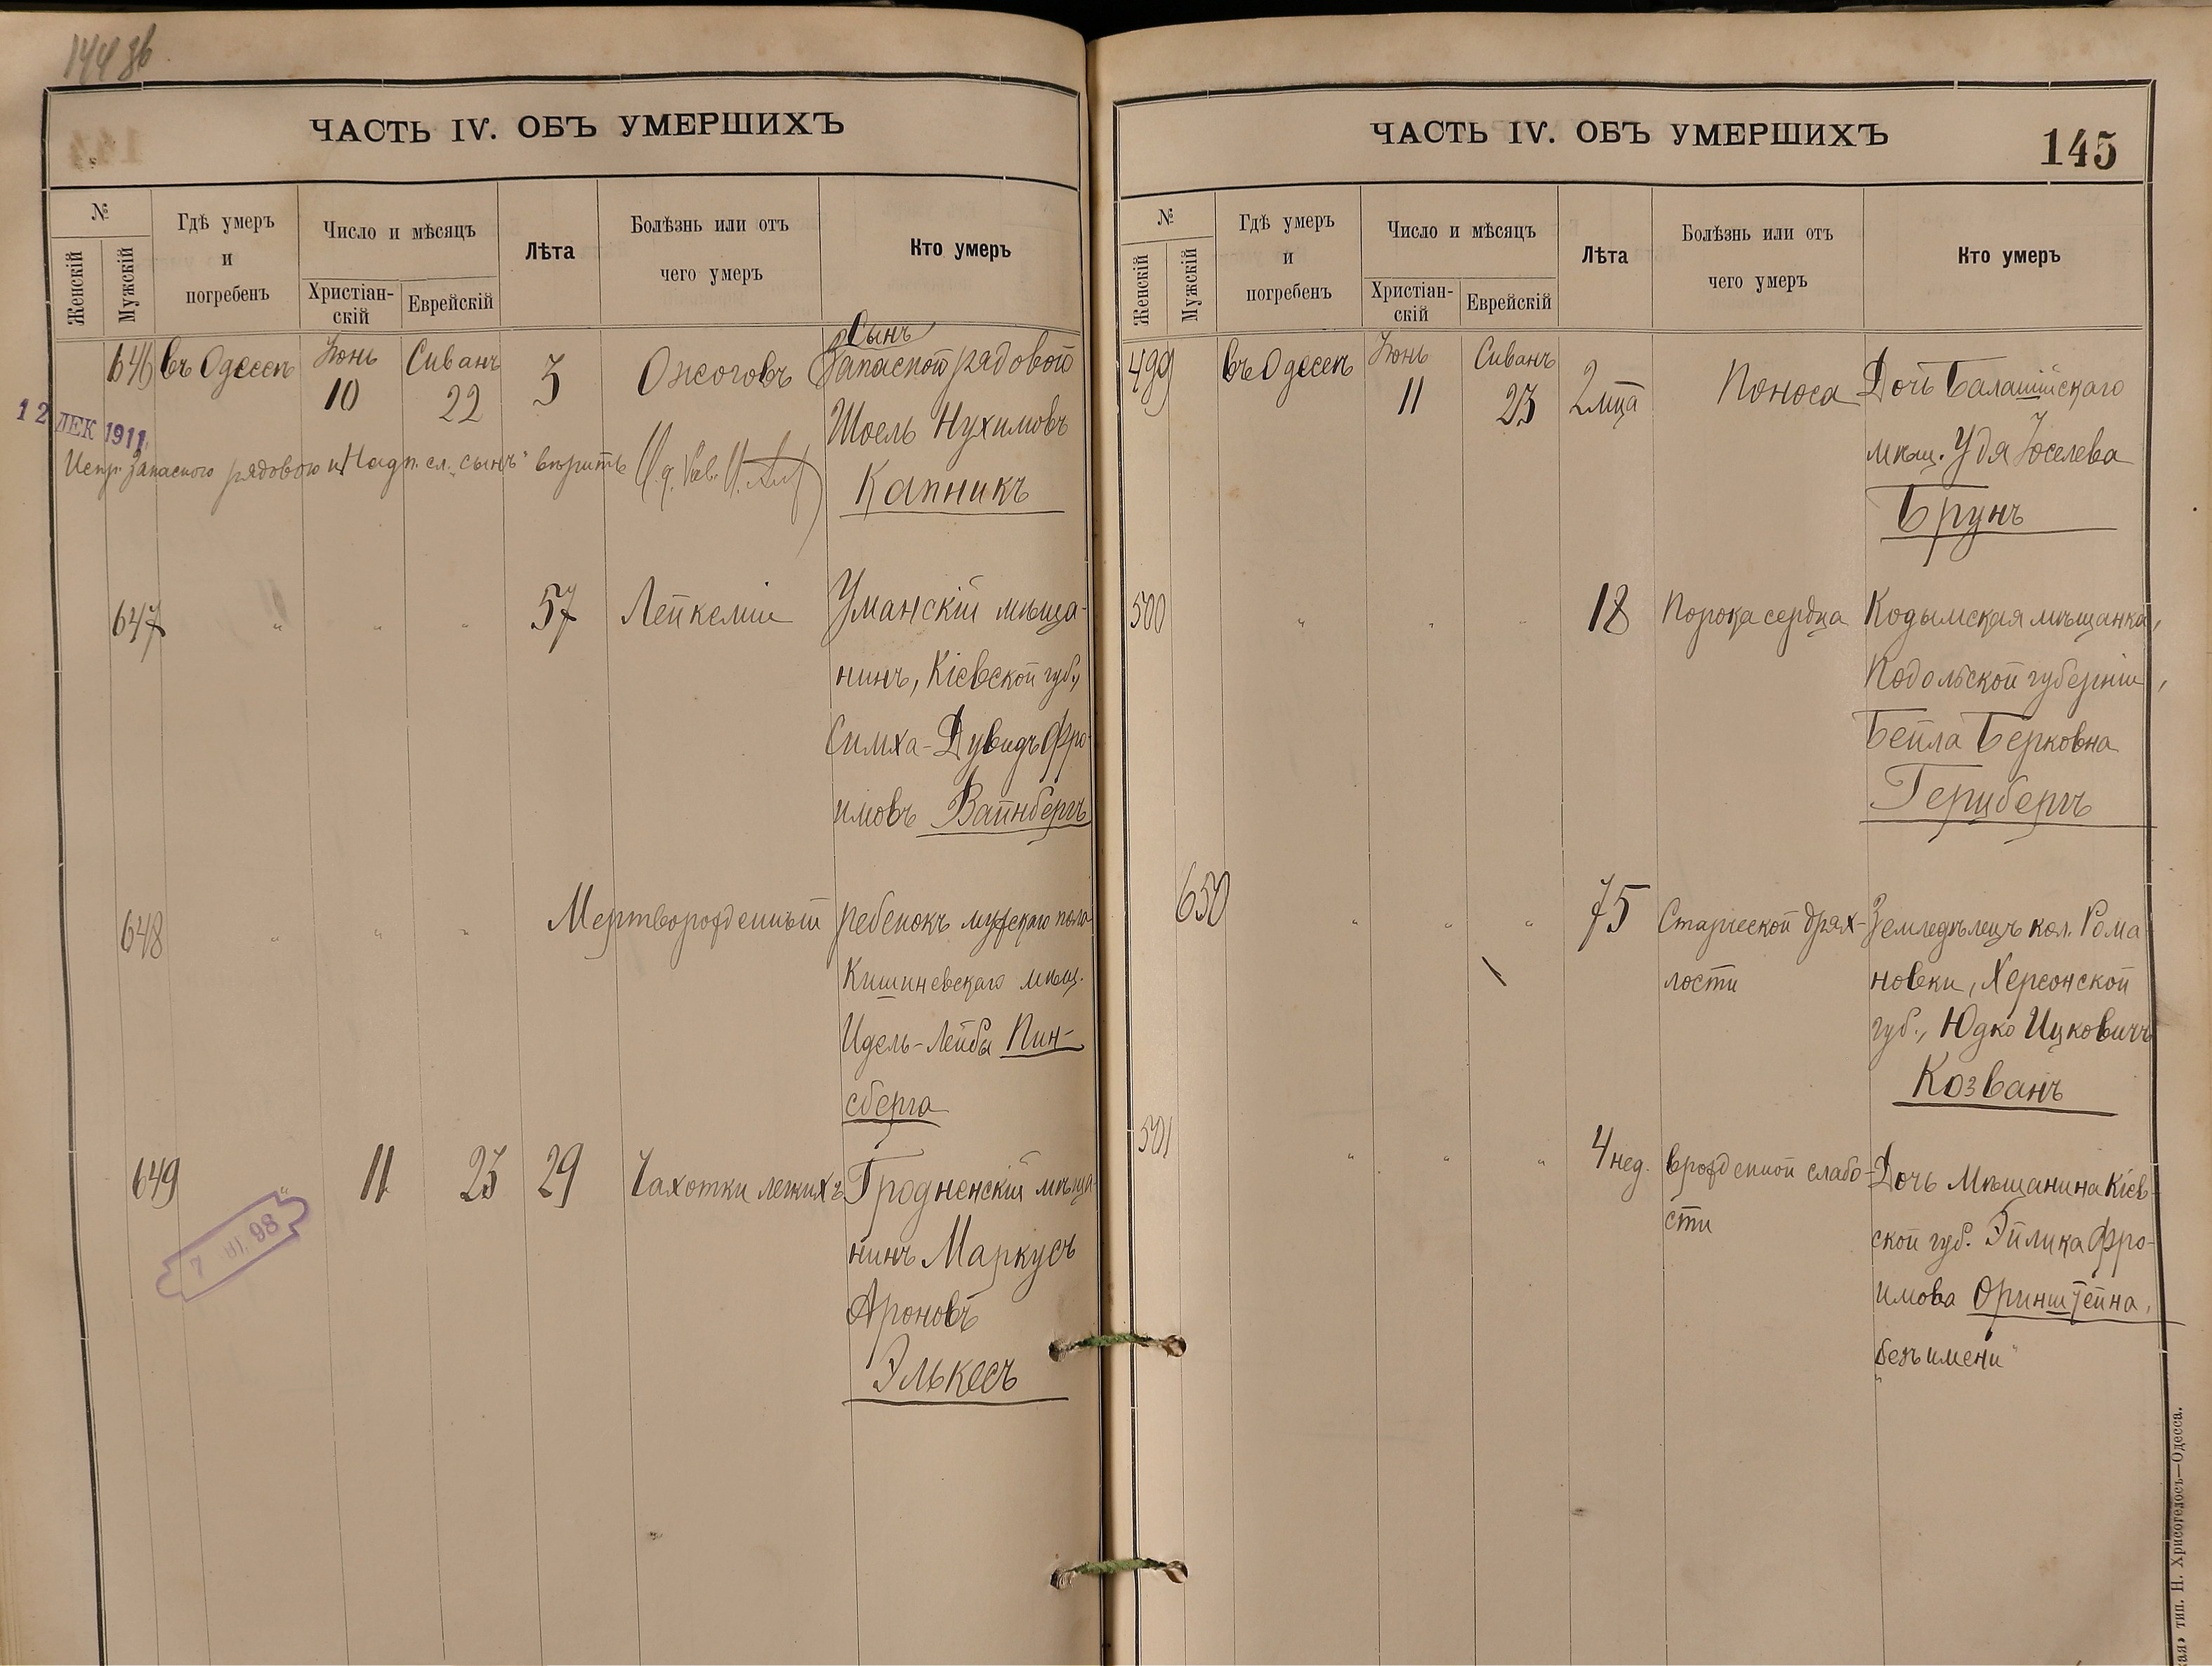 144 об
ЧАСТЬ IV. ОБЪ УМЕРШИХЪ
№
Женскій
Мужскій
Гдѣ умеръ
и
погребенъ
Число и мѣсяцъ
Христіан-
скій
Еврейскій
Лѣта
Болѣзнь или отъ
чего умеръ
Кто умеръ
646 въ Одессѣ Іюнь 10 Сиванъ 22 3 Ожоговъ
Сынъ
Запасной рядовой
Шоель Нухимовъ
Капникъ
12 ДЕК 1911
Испр. Запасного рядового и Надп. сл. „сынъ" вѣрить
647 „ „ „ 57 Лейкеміи Уманскій мѣща-
нинъ, Кіевской губ.,
Симха-Дувидъ Фро-
имовъ Вайнбергъ
648 „ „ „ Мертворожденный ребенокъ мужскаго пола
Кишиневскаго мѣщ.
Идель-Лейбы Пин-
сберга
649 „ 11 23 29 Чахотки легкихъ Гродненскій мѣща-
нинъ Маркусъ
Ароновъ
Элькесъ
98
ЧАСТЬ IV. ОБЪ УМЕРШИХЪ
145
№
Женскій
Мужскій
Гдѣ умеръ
и
погребенъ
Число и мѣсяцъ
Христіан-
скій
Еврейскій
Лѣта
Болѣзнь или отъ
чего умеръ
Кто умеръ
499 въ Одессѣ Іюнь 11 Сиванъ 23 2 мца Поноса Дочь
мѣщ. Удя Іоселева
Брунъ
500 „ „ „ 18 Порока сердца Кодымская мѣщанка,
Подольской губерніи,
Бейла Берковна
Герцбергъ
650 „ „ „ 75 Старческой дрях- Земледѣлецъ кол. Рома
лости новки, Херсонской
губ., Юдко Ицковичъ
Козванъ
501 „ „ „ 4 нед. врожденной слабо- Дочь Мѣщанина Кіев-
сти ской губ. Эйлика Фро-
имова Оринштейна,
„безъ имени"
тип. Н. Хрисогелосъ—Одесса.